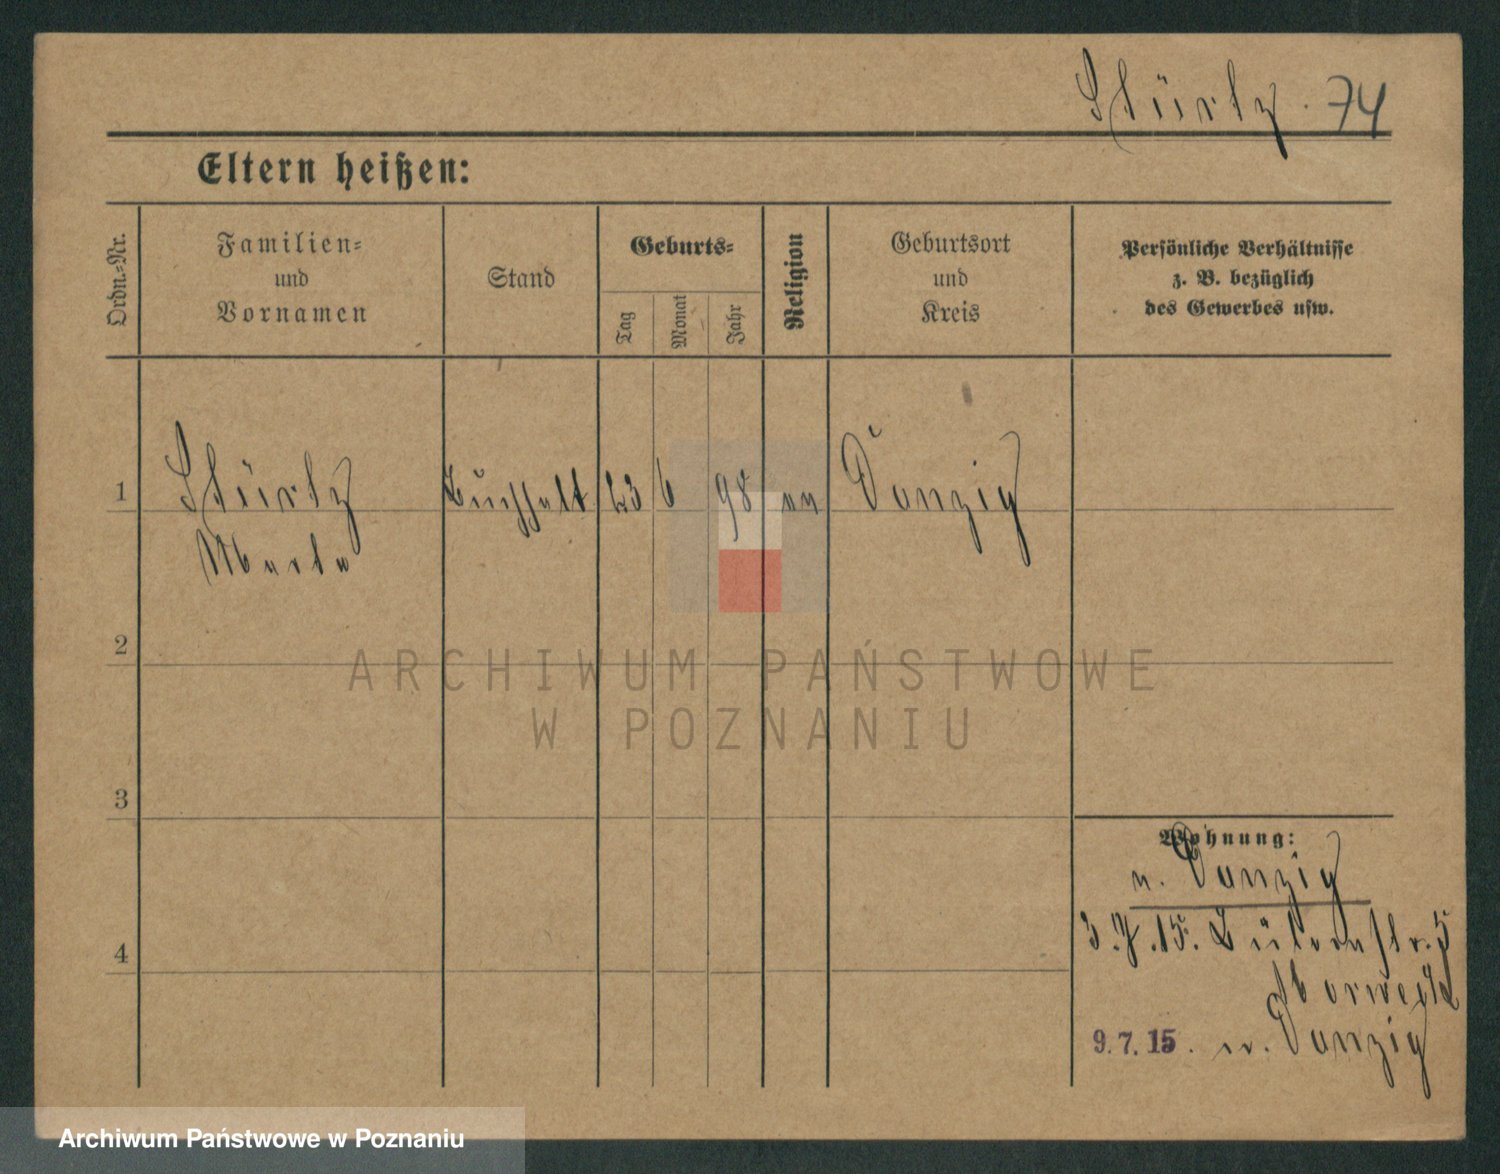 Stürtz. 74
Eltern heißen:
Ordn.-Nr.
Familien-
und
Vornamen
Stand
Geburts-
Tag
Monat
Jahr
Religion
Geburtsort
und
Kreis
Persönliche Verhältnisse
z. B. bezüglich
des Gewerbes usw.
1
Stürtz
Buchhalt
23
6
98
ev
Danzig
2
3
4
Wohnung:
v. Danzig
3.7.15. str. 5
9.7.15. n. Danzig
ARCHIWUM PAŃSTWOWE
W POZNANIU
Archiwum Państwowe w Poznaniu